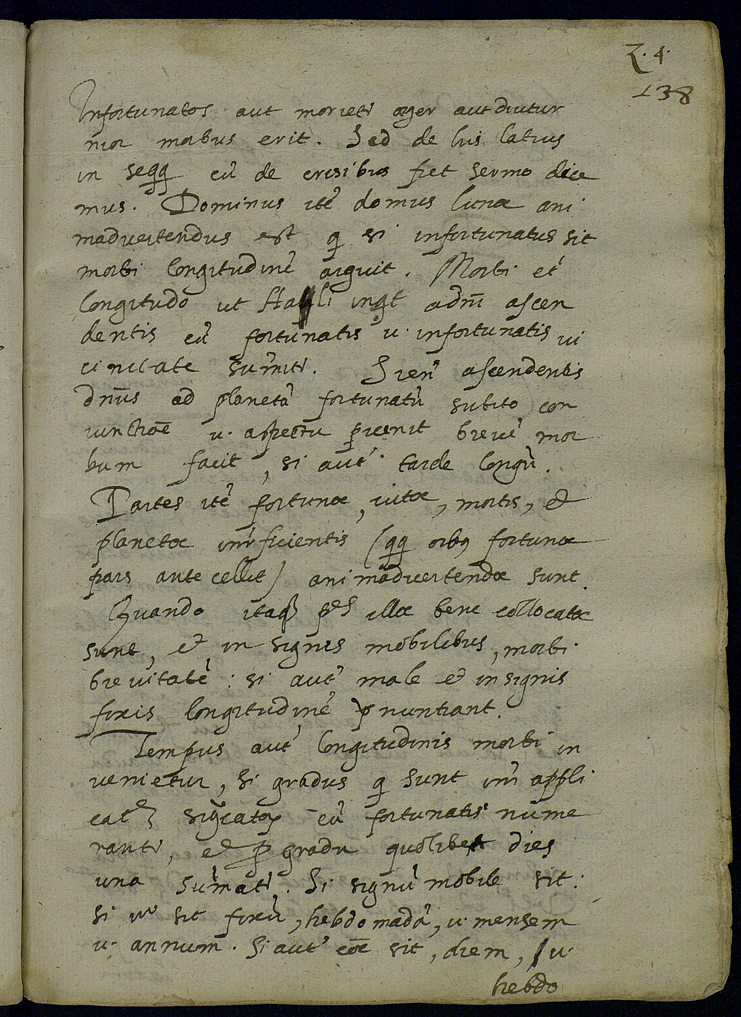 Z. 4.
138
Infortunatos aut moriet᷑ æger aut diutur
nior morbus erit. Sed de his latius
in seqq̃ cũ de crisibus fiet sermo dice
mus. Dominus itẽ domus lunæ ani
madvertendus est q̃ si infortunatus sit
morbi longitudinẽ arguit. Morbi et̃
longitudo ut Hali adñi ascen
dentis cũ fortunatis u. infortunatis vi
cinitate sumit᷑. Si en̄ ascendentis
dñus ad planetã fortunatũ subito con
iunctiõe u. aspectu ꝑvenit brevẽ mor
bum facit, si aut̃ tarde longũ.
Partes itẽ fortunæ, vitæ, mortis, et
planetæ int̃ficientis (qq̃ orbꝫ fortunæ
pars antecellit) animadvertendæ sunt.
Quando itaqꝫ ꝑes illæ bene collocatæ
sunt, et in signis mobilibus, morbi
brevitatẽ: si aut̃ male et in signis
fixis longitudinẽ ꝓnuntiant.
Tempus aut̃ longitudinis morbi in
veniet᷑, si gradus q̃ sunt int̃ appli
catẽ sig̃catoꝝ cũ fortunatis nume
rant᷑, et ꝓ gradu quolibet dies
una sũmat᷑. Si signũ mobile sit:
si v̊ sit fixũ, hebdomadã, u. mensem
u. annum. Si aut̃ cõe sit, diem, u.
hebdo